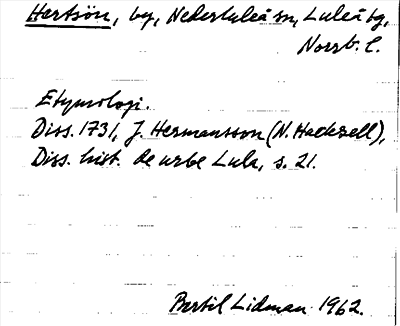 Hertsön, by, Nederluleå sn, Luleå tg,
Norrb. l.
Etymologi.
Diss. 1731, J. Hermansson (N. Hackzell),
Diss. hist. de urbe Lula, s. 21.
Bertil Lidman 1962.